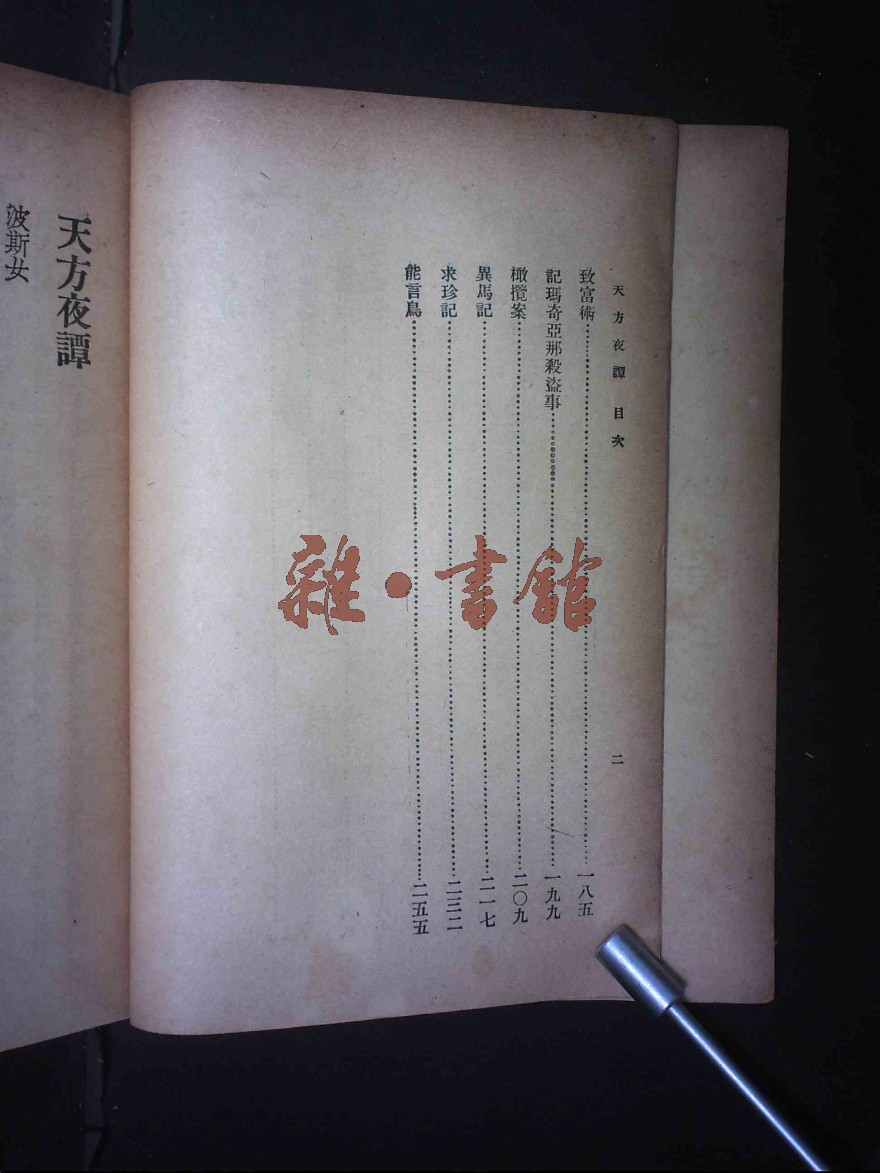 天方夜譚 目次 二
致富術 一八五
記瑪奇亞那殺盜事 一九九
橄欖案 二〇九
異馬記 二一七
求珍記 二三二
能言鳥 二五五
天方夜譚
波斯女
雜·書館